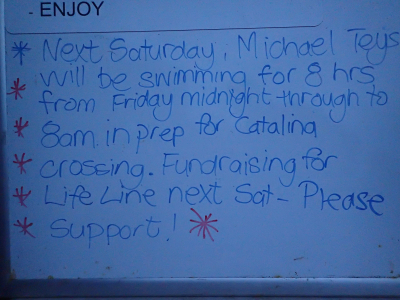 - ENJOY
* Next Saturday, Michael Teys
* will be swimming for 8 hrs
from Friday midnight through to
* 8am in prep for Catalina
* crossing. Fundraising for
* Life Line next Sat - Please
* Support! *